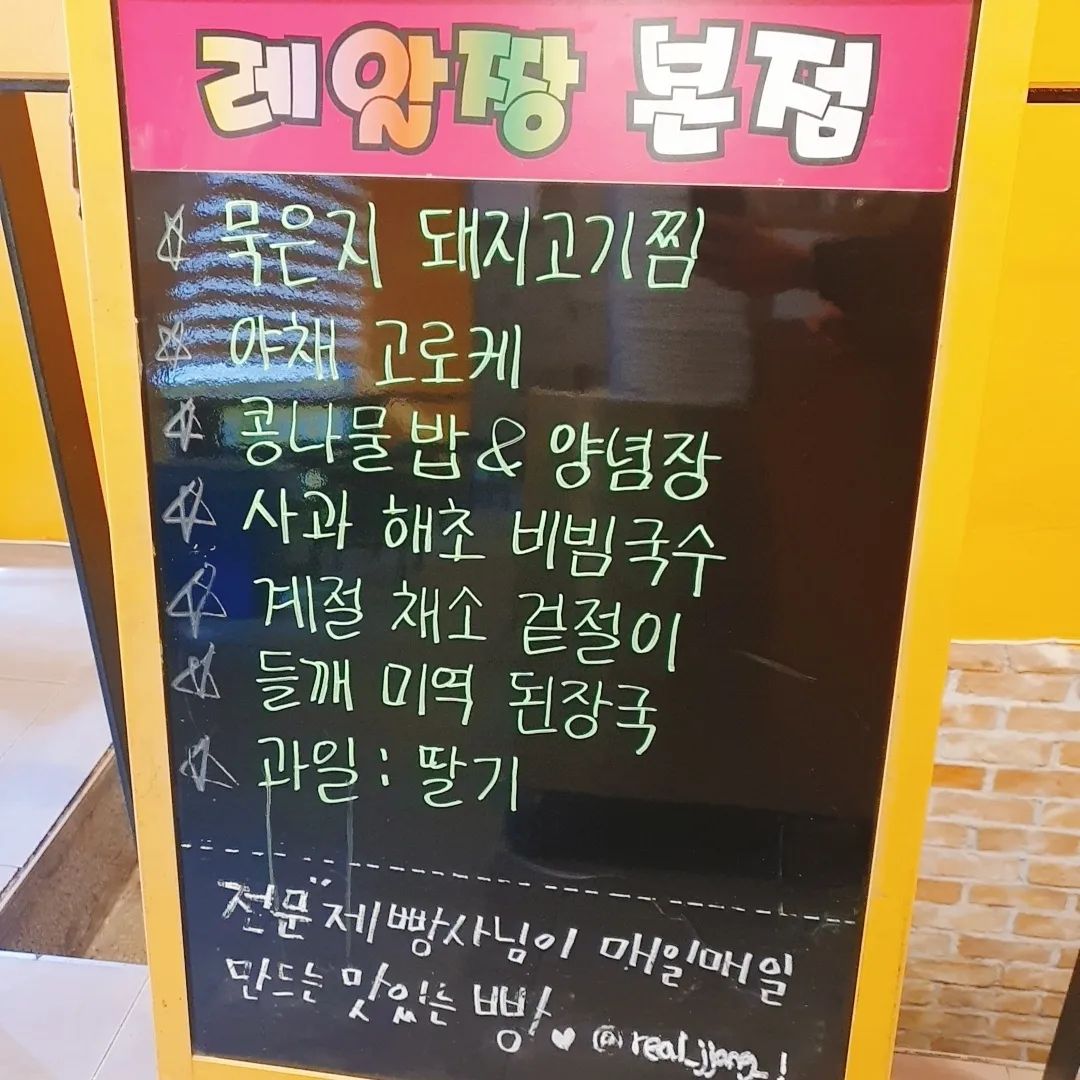 레알짱 본점
묵은지 돼지고기찜
야채 고로케
콩나물밥 & 양념장
사과 해초 비빔국수
계절 채소 겉절이
들깨 미역 된장국
과일 : 딸기
전문 제빵사님이 매일매일
만드는 맛있는 빵♥ @real_jjang_!